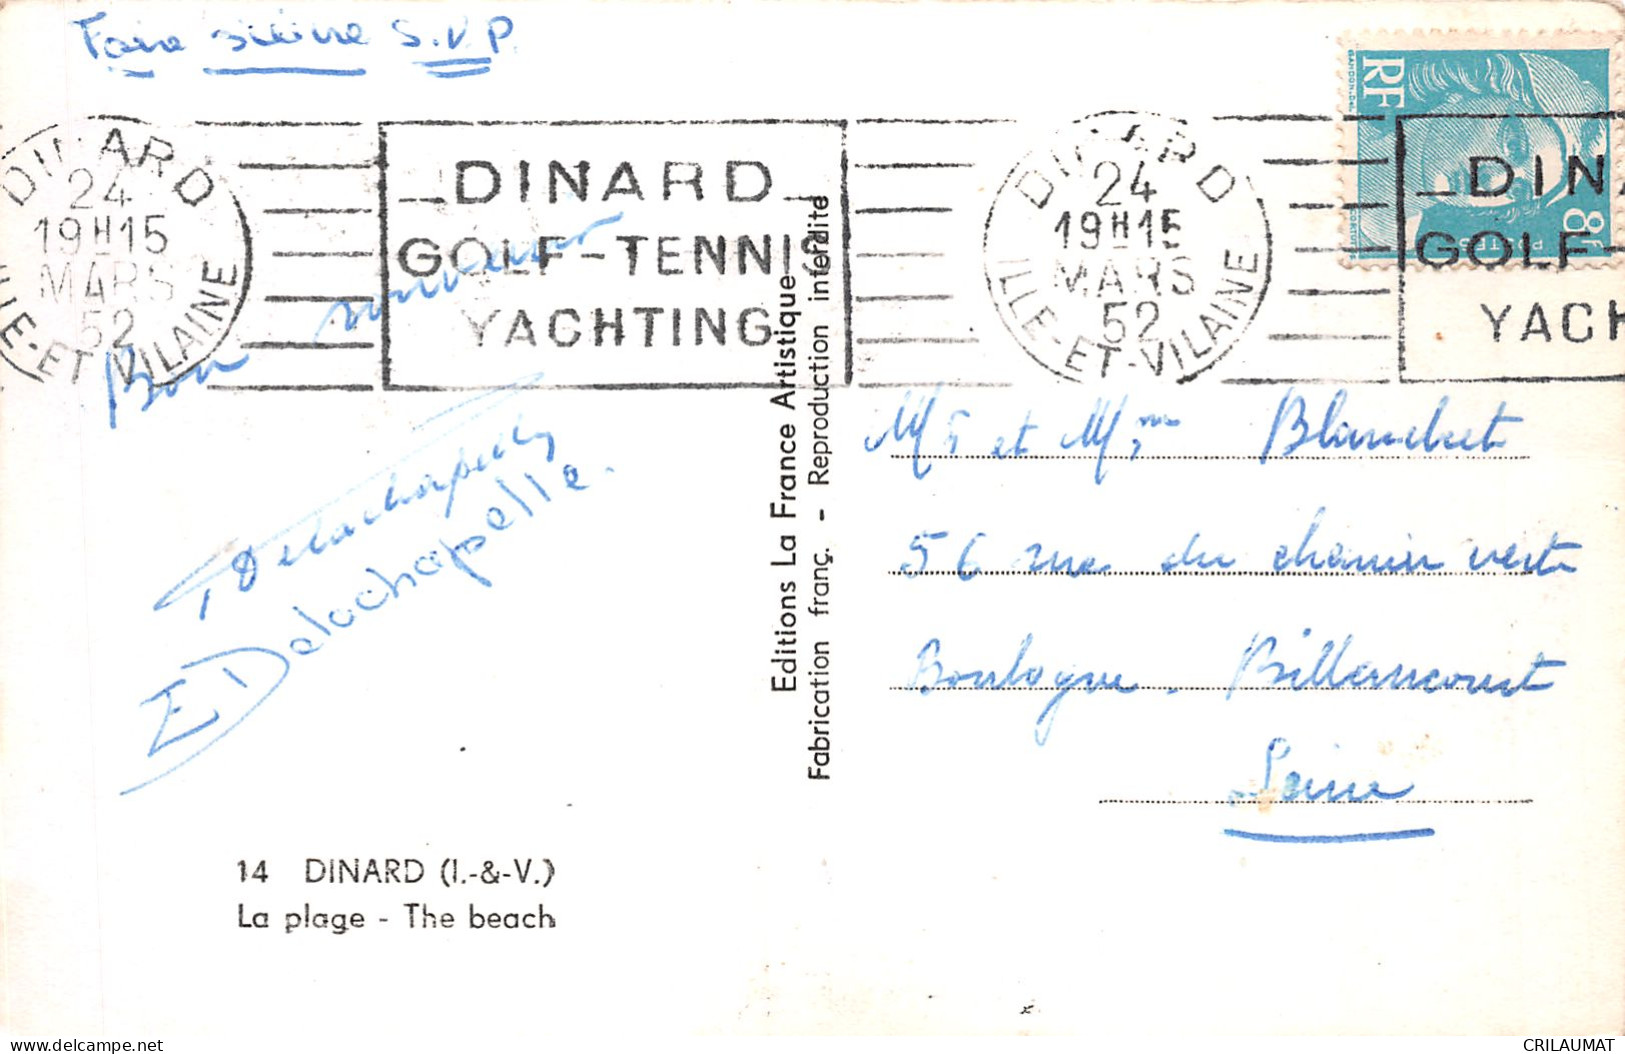 Faire suivre S.V.P.
DINARD
24
19H15
MARS
52
ILLE-ET-VILAINE
DINARD
GOLF-TENNIS
YACHTING
DINARD
24
19H15
MARS
52
ILLE-ET-VILAINE
RF
8F
POSTES
DIN
GOLF
YACH
Bon souvenir
Delachapelle
E Delachapelle.
Editions La France Artistique
Fabrication franç. - Reproduction interdite
Mr et Mme Blanchet
56 rue du chemin vert
Boulogne - Billancourt
Seine
14 DINARD (I.-&-V.)
La plage - The beach
CRILAUMAT